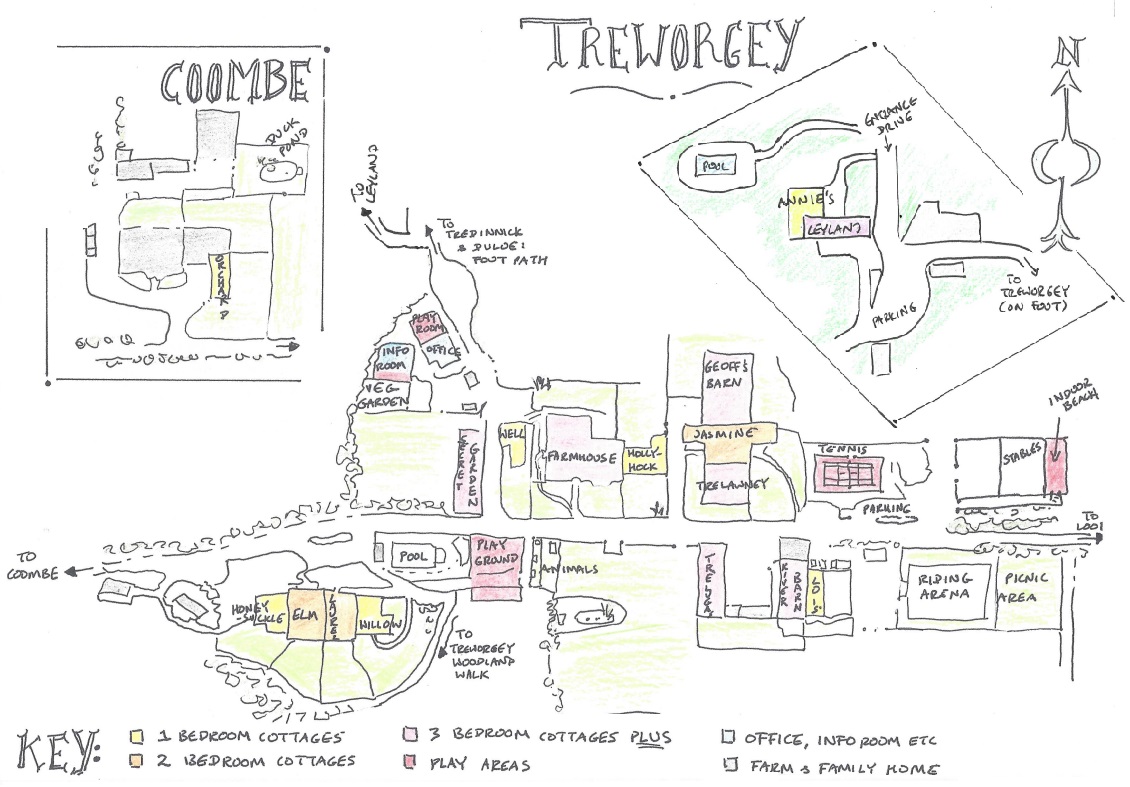 TREWORGEY
COOMBE
DUCK
POND
ORCHARD
N
ENTRANCE
DRIVE
POOL
ANNIE'S
LEYLAND
TO
TREWORGEY
(ON FOOT)
PARKING
TO
LEYLAND
TO
TREDINNICK
& DULOE:
FOOT PATH
PLAY
ROOM
OFFICE
INFO
ROOM
VEG
GARDEN
SECRET
GARDEN
WELL
FARMHOUSE
HOLLY-
HOCK
GEOFF'S
BARN
JASMINE
TRELAWNEY
TENNIS
PARKING
INDOOR
BEACH
STABLES
TO
LOOE
TO
COOMBE
POOL
PLAY
GROUND
ANIMALS
HONEY
SUCKLE
ELM
LAUREL
WILLOW
TO
TREWORGEY
WOODLAND
WALK
RIVER
BARN
LOIS'
RIDING
ARENA
PICNIC
AREA
KEY:
1 BEDROOM COTTAGES
2 BEDROOM COTTAGES
3 BEDROOM COTTAGES PLUS
PLAY AREAS
OFFICE, INFO ROOM ETC
FARM & FAMILY HOME